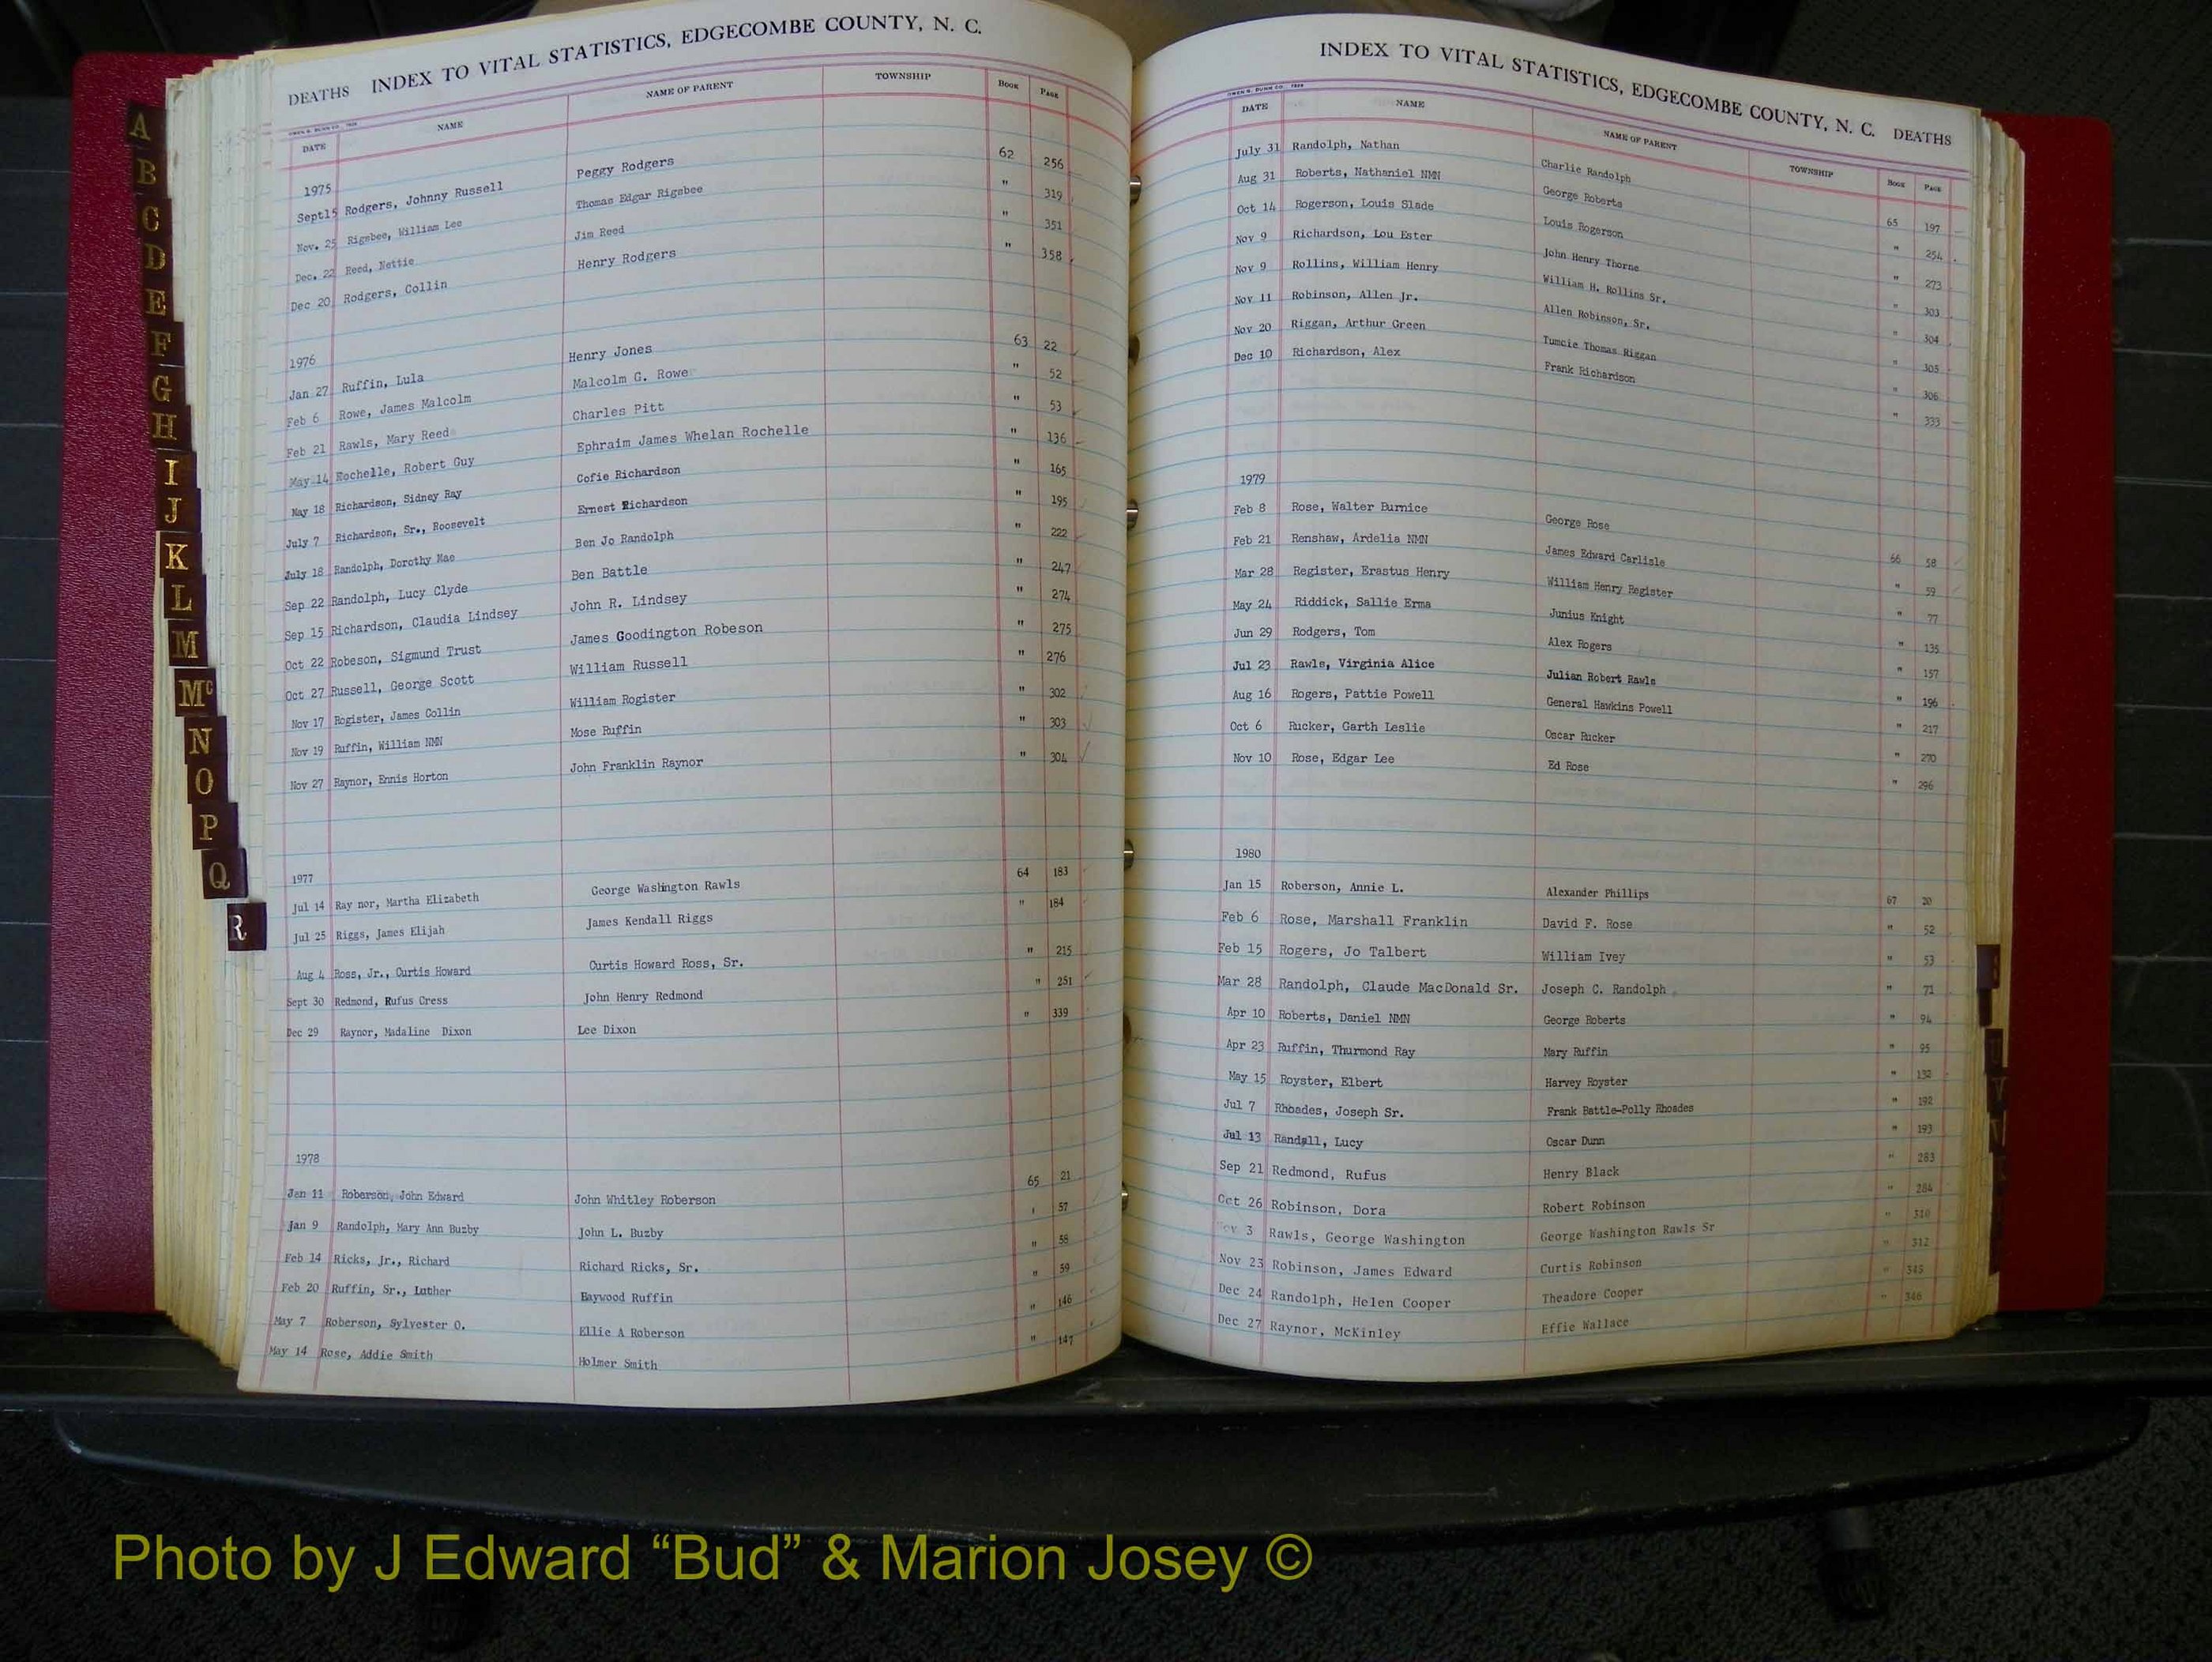 DEATHS INDEX TO VITAL STATISTICS, EDGECOMBE COUNTY, N. C.
DATE NAME NAME OF PARENT TOWNSHIP Book Page
1975
Sept15 Rodgers, Johnny Russell Peggy Rodgers 62 256
Nov. 25 Rigsbee, William Lee Thomas Edgar Rigsbee " 319
Dec. 22 Reed, Nettie Jim Reed " 351
Dec 20 Rodgers, Collin Henry Rodgers " 358
1976
Jan 27 Ruffin, Lula Henry Jones 63 22
Feb 6 Rowe, James Malcolm Malcolm G. Rowe " 52
Feb 21 Rawls, Mary Reed Charles Pitt " 53
May 14 Rochelle, Robert Guy Ephraim James Whelan Rochelle " 136
May 18 Richardson, Sidney Ray Cofie Richardson " 165
July 7 Richardson, Sr., Roosevelt Ernest Richardson " 195
July 18 Randolph, Dorothy Mae Ben Jo Randolph " 222
Sep 22 Randolph, Lucy Clyde Ben Battle " 247
Sep 15 Richardson, Claudia Lindsey John R. Lindsey " 274
Oct 22 Robeson, Sigmund Trust James Goodington Robeson " 275
Oct 27 Russell, George Scott William Russell " 276
Nov 17 Rogister, James Collin William Rogister " 302
Nov 19 Ruffin, William NMN Mose Ruffin " 303
Nov 27 Raynor, Ennis Horton John Franklin Raynor " 304
1977
Jul 14 Ray nor, Martha Elizabeth George Washington Rawls 64 183
Jul 25 Riggs, James Elijah James Kendall Riggs " 184
Aug 4 Ross, Jr., Curtis Howard Curtis Howard Ross, Sr. " 215
Sept 30 Redmond, Rufus Cress John Henry Redmond " 251
Dec 29 Raynor, Madaline Dixon Lee Dixon " 339
1978
Jan 11 Roberson, John Edward John Whitley Roberson 65 21
Jan 9 Randolph, Mary Ann Buzby John L. Buzby ' 57
Feb 14 Ricks, Jr., Richard Richard Ricks, Sr. " 58
Feb 20 Ruffin, Sr., Luther Haywood Ruffin " 59
May 7 Roberson, Sylvester O. Ellie A Roberson " 146
May 14 Rose, Addie Smith Holmer Smith " 147
A
B
C
D
E
F
G
H
I
J
K
L
M
Mc
N
O
P
Q
R
INDEX TO VITAL STATISTICS, EDGECOMBE COUNTY, N. C. DEATHS
DATE NAME NAME OF PARENT TOWNSHIP Book Page
July 31 Randolph, Nathan Charlie Randolph 65 197
Aug 31 Roberts, Nathaniel NMN George Roberts " 254
Oct 14 Rogerson, Louis Slade Louis Rogerson " 273
Nov 9 Richardson, Lou Ester John Henry Thorne " 303
Nov 9 Rollins, William Henry William H. Rollins Sr. " 304
Nov 11 Robinson, Allen Jr. Allen Robinson, Sr. " 305
Nov 20 Riggan, Arthur Green Thomas Riggan " 306
Dec 10 Richardson, Alex Frank Richardson " 333
1979
Feb 8 Rose, Walter Burnice George Rose 66 58
Feb 21 Renshaw, Ardelia NMN James Edward Carlisle " 59
Mar 28 Register, Erastus Henry William Henry Register " 77
May 24 Riddick, Sallie Erma Junius Knight " 135
Jun 29 Rodgers, Tom Alex Rogers " 157
Jul 23 Rawls, Virginia Alice Julian Robert Rawls " 196
Aug 16 Rogers, Pattie Powell General Hawkins Powell " 217
Oct 6 Rucker, Garth Leslie Oscar Rucker " 270
Nov 10 Rose, Edgar Lee Ed Rose " 296
1980
Jan 15 Roberson, Annie L. Alexander Phillips 67 20
Feb 6 Rose, Marshall Franklin David F. Rose " 52
Feb 15 Rogers, Jo Talbert William Ivey " 53
Mar 28 Randolph, Claude MacDonald Sr. Joseph C. Randolph " 71
Apr 10 Roberts, Daniel NMN George Roberts " 94
Apr 23 Ruffin, Thurmond Ray Mary Ruffin " 95
May 15 Royster, Elbert Harvey Royster " 132
Jul 7 Rhoades, Joseph Sr. Frank Battle-Polly Rhoades " 192
Jul 13 Randall, Lucy Oscar Dunn " 193
Sep 21 Redmond, Rufus Henry Black " 283
Oct 26 Robinson, Dora Robert Robinson " 284
Nov 3 Rawls, George Washington George Washington Rawls Sr " 310
Nov 23 Robinson, James Edward Curtis Robinson " 312
Dec 24 Randolph, Helen Cooper Theadore Cooper " 345
Dec 27 Raynor, McKinley Effie Wallace " 346
Photo by J Edward “Bud” & Marion Josey ©